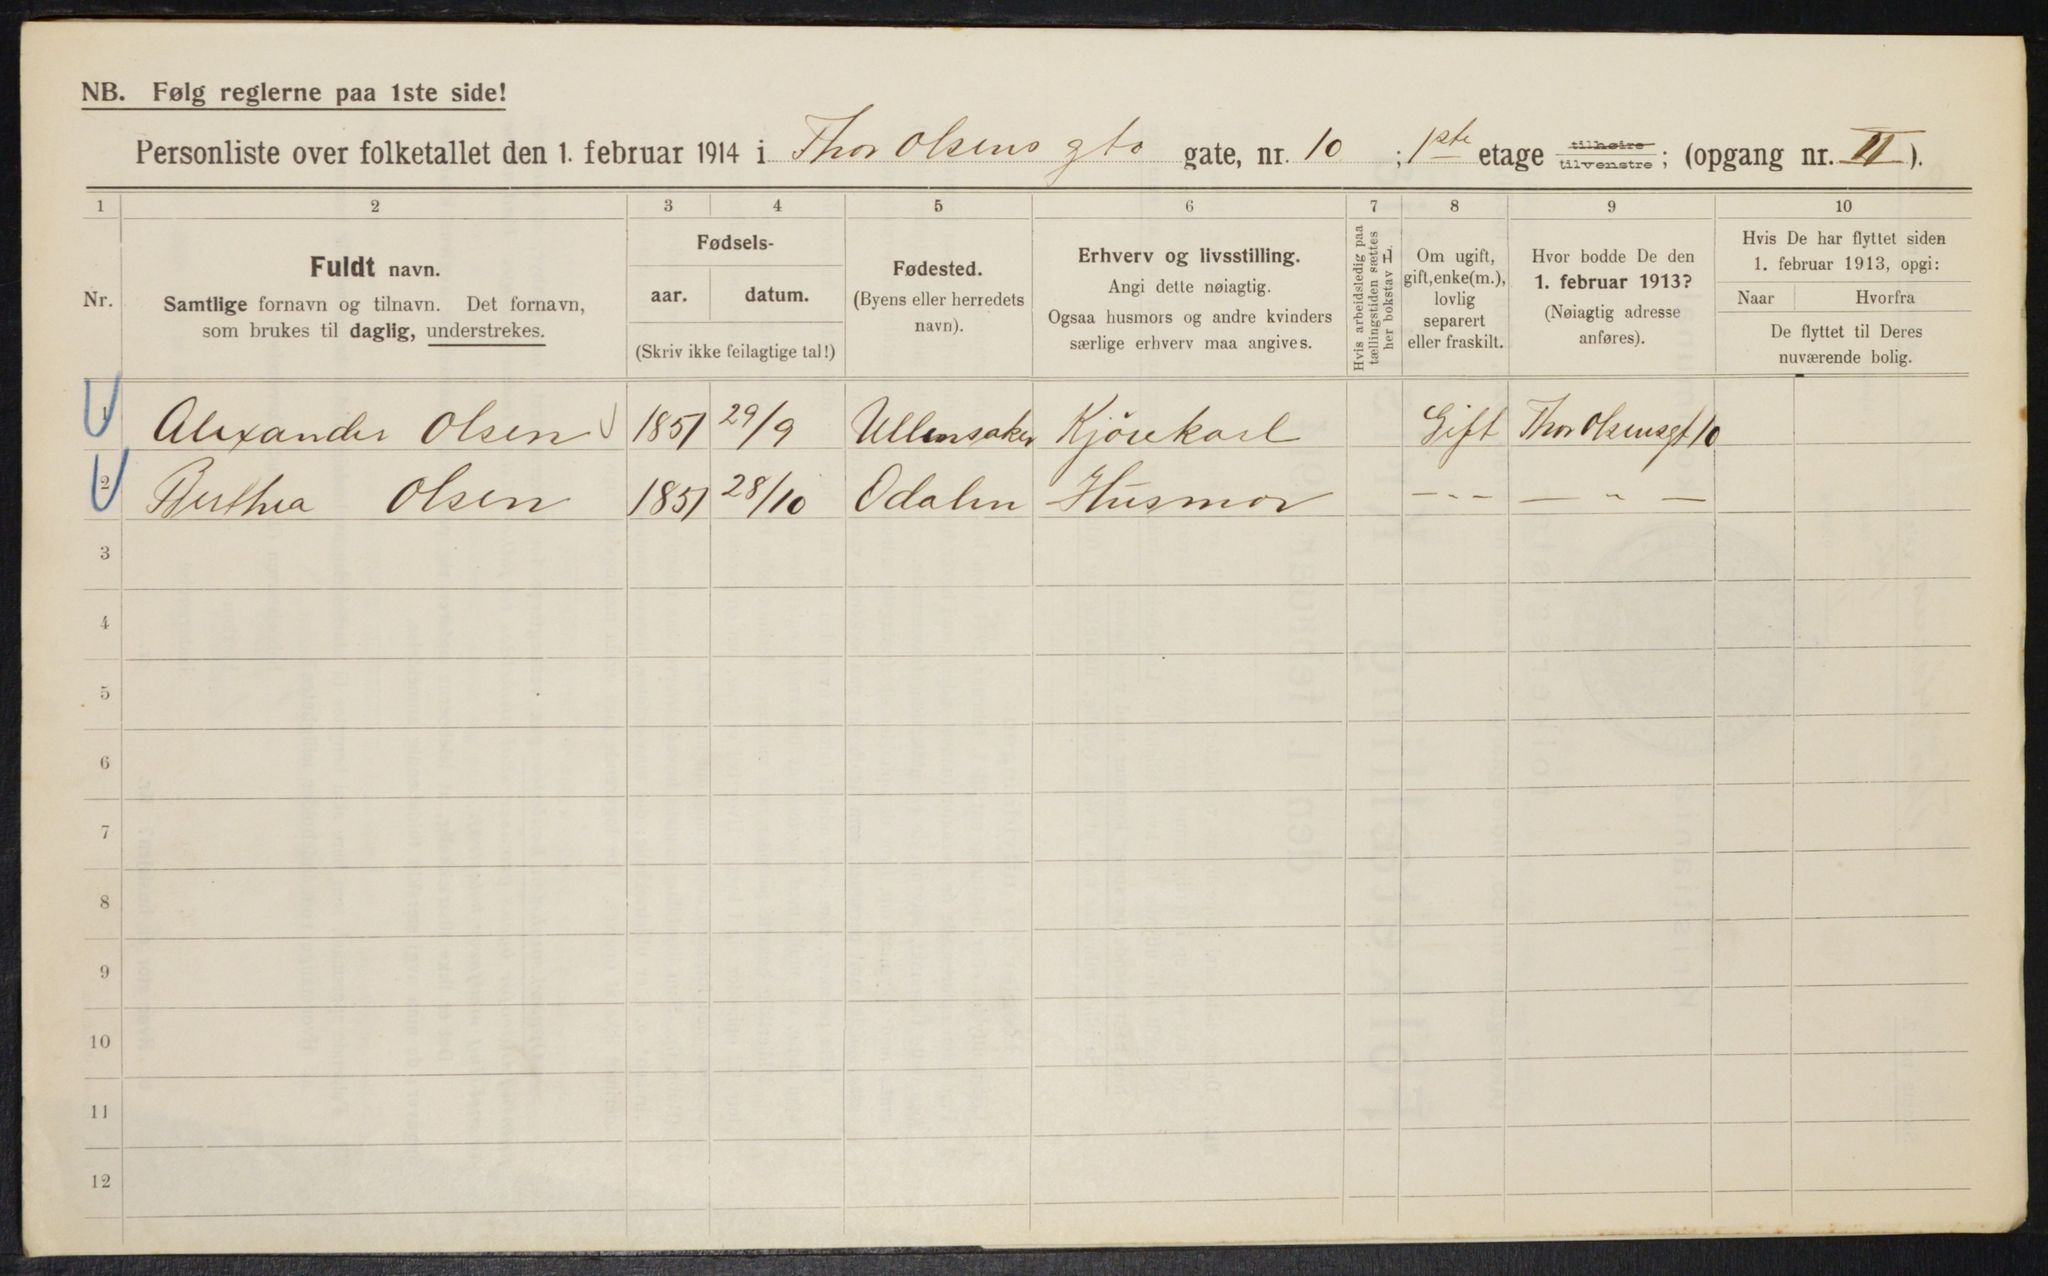 NB. Følg reglerne paa 1ste side!
Personliste over folketallet den 1. februar 1914 i Thor Olsens gto gate, nr. 10 ; 1ste etage tilhøire tilvenstre ; (opgang nr. II ).
1 2 3 4 5 6 7 8 9 10
Nr.
Fuldt navn.
Samtlige fornavn og tilnavn. Det fornavn,
som brukes til daglig, understrekes.
Fødsels-
aar. datum.
(Skriv ikke feilagtige tal!)
Fødested.
(Byens eller herredets
navn).
Erhverv og livsstilling.
Angi dette nøiagtig.
Ogsaa husmors og andre kvinders
særlige erhverv maa angives.
Hvis arbeidsledig paa
tællingstiden sættes
her bokstav L.
Om ugift,
gift, enke(m.),
lovlig
separert
eller fraskilt.
Hvor bodde De den
1. februar 1913?
(Nøiagtig adresse
anføres).
Hvis De har flyttet siden
1. februar 1913, opgi:
Naar Hvorfra
De flyttet til Deres
nuværende bolig.
1 Alexander Olsen 1851 29/9 Ullensaker Kjörekarl Gift Thor Olsensgt 10
2 Berthea Olsen 1851 28/10 Odalen Husmor - - - — " —
3
4
5
6
7
8
9
10
11
12